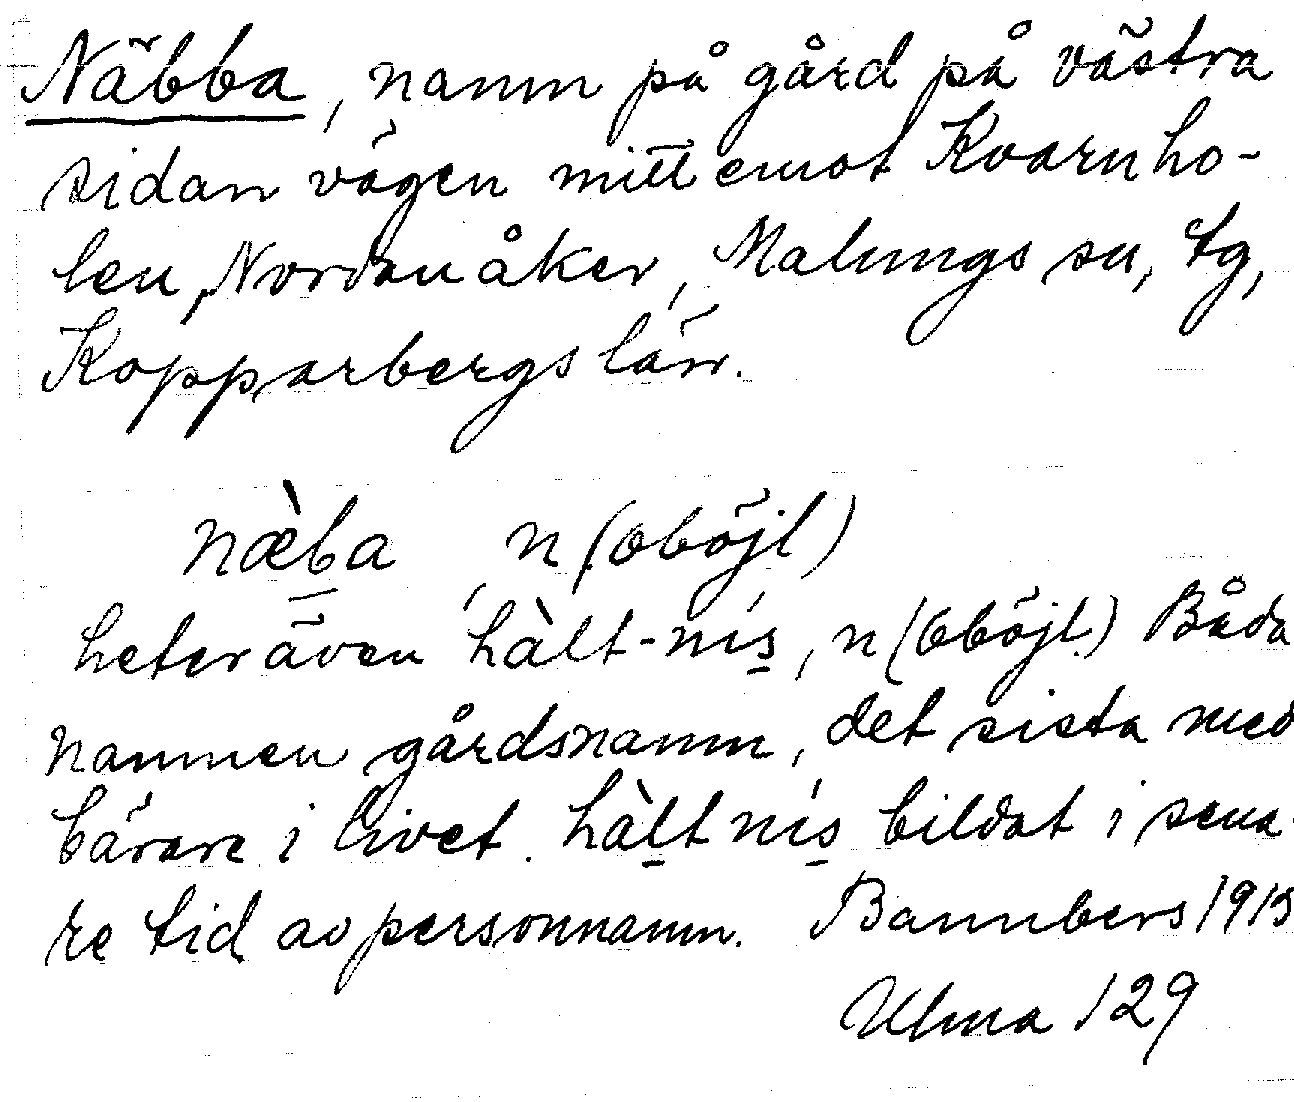 Näbba, namn på gård på västra
sidan vägen mitt emot Kvarnho-
len, Nordanåker, Malungs sn, tg,
Kopparbergs län.
næ̀ba, n (oböjl)
heter även hàlt-nís, n (oböjl.) Båda
namnen gårdsnamn, det sista med
bärare i livet. hàlt nís bildat i sena-
re tid av personnamn. Bannbers 1915
Ulma 129